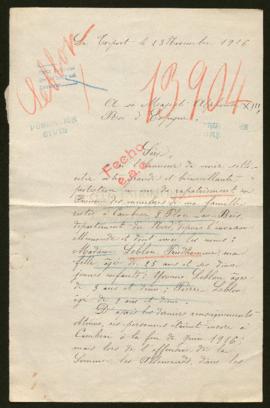 Le Tréport le 13 Novembre 1916
Leblon
13904
A sa Majesté Alphonse XIII,
Roi d'Espagne.
POBLACION
CIVIL
Sire,
J'ai l'honneur de
votre grande et bienveillante
Fecho
protection en vue du rapatriement en
France des membres de ma famille
restés à Cambrai 8 Place au Bois,
département du Nord, depuis l'invasion
allemande et dont voici les noms:
Madame Leblon Prudhomme, ma
fille âgée de 25 ans et ses deux
jeunes enfants: Yvonne Leblon âgée
de 3 ans et demi; Pierre Leblon
âgé de 2 ans et demi.
D'après les derniers renseignements
obtenus, ces personnes étaient encore à
Cambrai à la fin de juin 1916;
mais lors de l'offensive de la
Somme, les Allemands, dans les